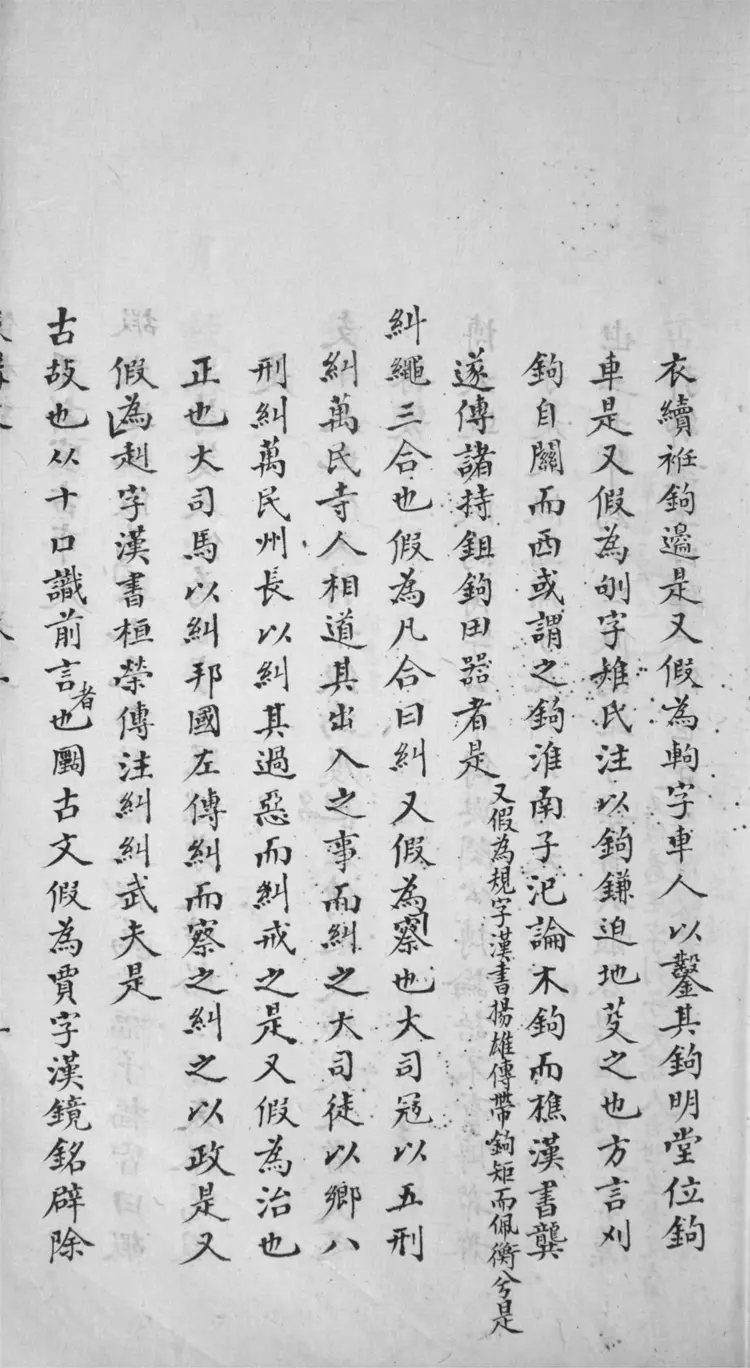 衣續袵鉤邊是又假為軥字車人以鑿其鉤明堂位鉤
車是又假為刨字雉氏注以鉤鎌迫地芟之也方言刈
鉤自關而西或謂之鉤淮南子氾論木鉤而樵漢書龔
遂傳諸持鉏鉤田器者是
又假為規字漢書揚雄傳帶鉤矩而佩衡兮是
糾繩三合也假為凡合曰糾又假為察也大司寇以五刑
糾萬民寺人相道其出入之事而糾之大司徒以鄉八
刑糾萬民州長以糾其過惡而糾戒之是又假為治也
正也大司馬以糾邦國左傳糾而察之糾之以政是又
假為赳字漢書桓榮傳注糾糾武夫是
古故也从十口識前言者也𠖠古文假為賈字漢鏡銘辟除